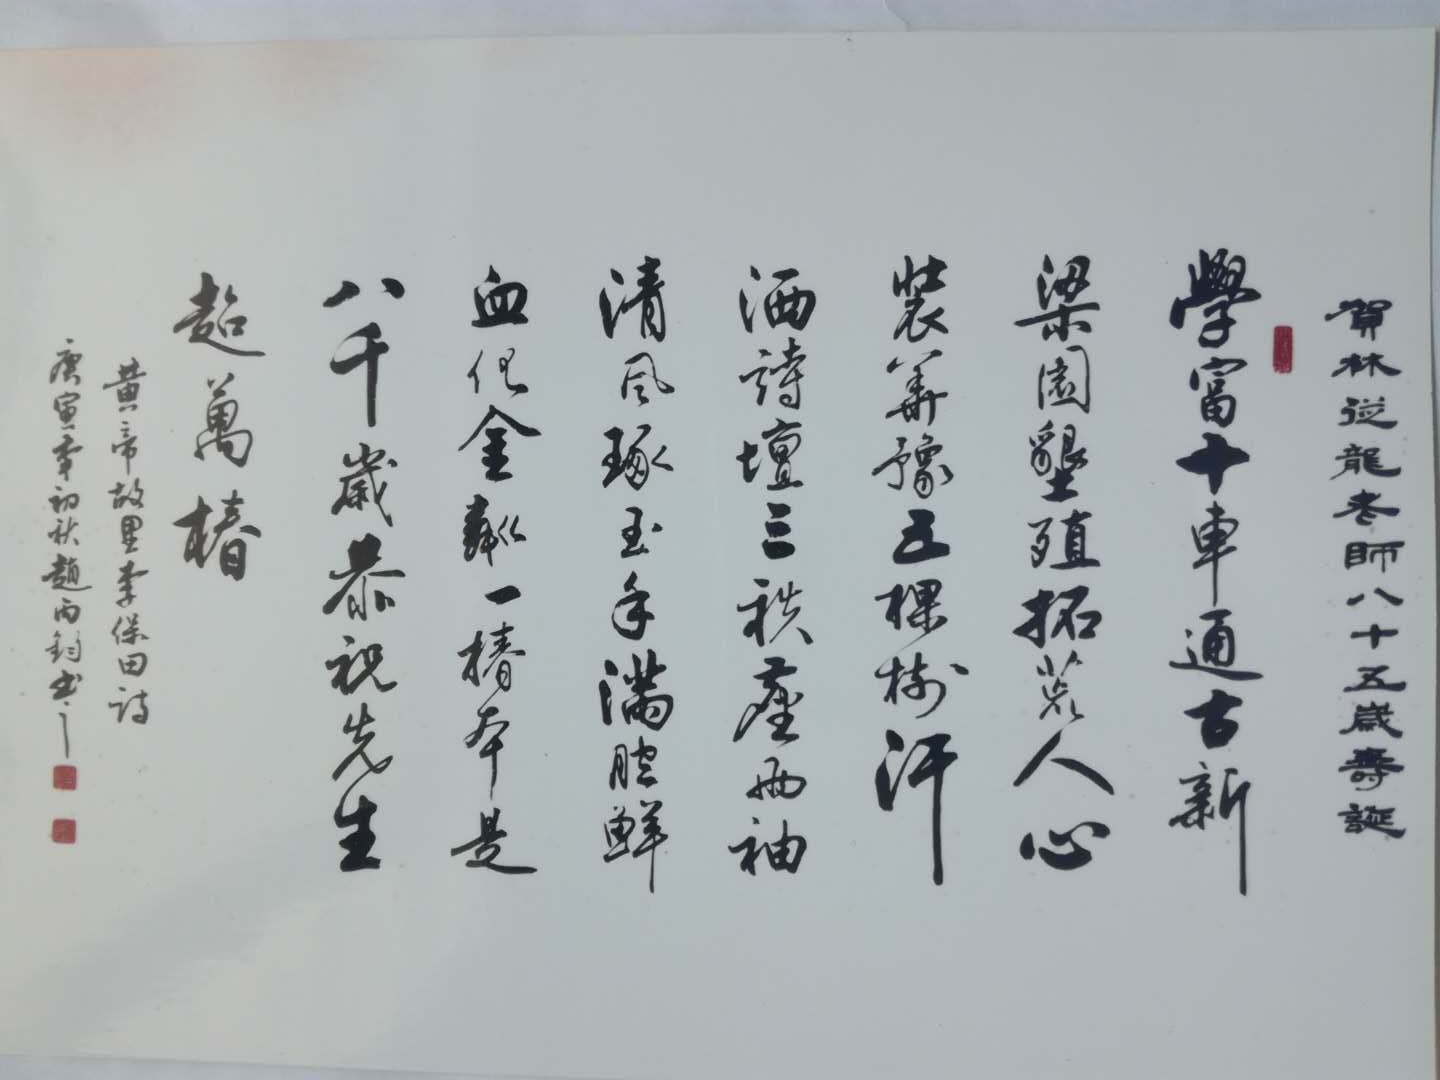 賀林從龍老師八十五歲壽誕
學富十車通古新
梁園墾殖拓荒人心
裝華豫五棵樹汗
洒詩壇三秩座两袖
清風琢玉手滿腔鮮
血化金粼一椿本是
八千歲恭祝先生
超萬椿
黄帝故里李保田詩
庚寅年初秋趙丙鈞书